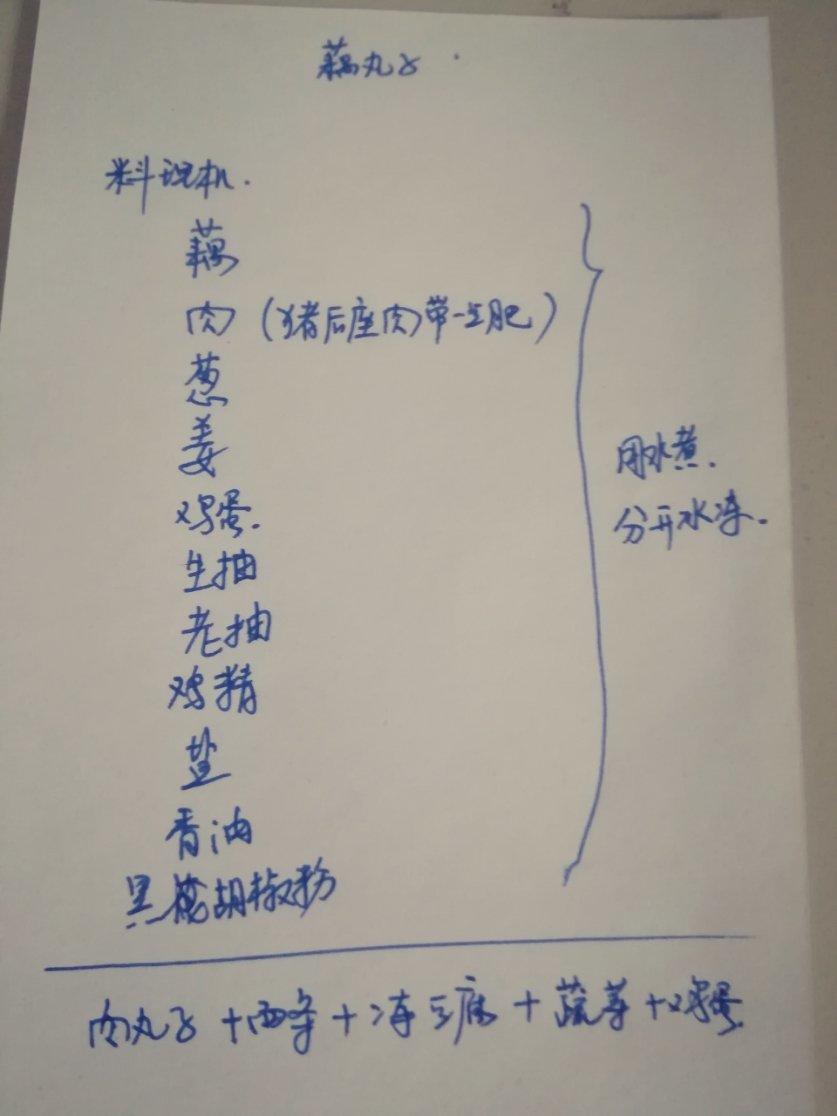 藕丸子
料理机.
藕
肉（猪后座肉带一点肥）
葱
姜
鸡蛋.
生抽
老抽
鸡精
盐
香油
黑胡椒粉
用水煮.
分开水冻.
肉丸子+面条+冻豆腐+蔬菜+鸡蛋